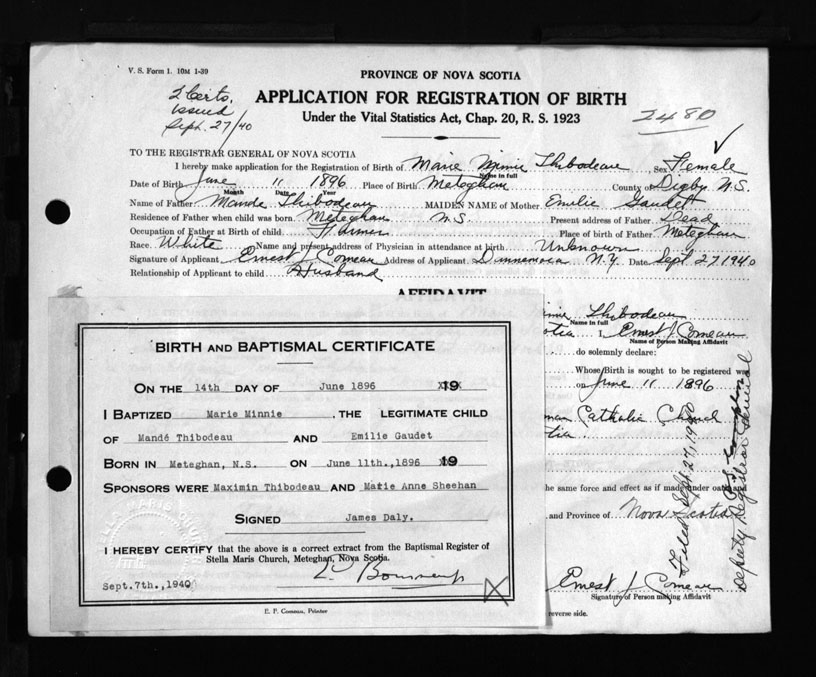 V. S. Form 1. 10M 1-39
PROVINCE OF NOVA SCOTIA
2 Certs.
issued
Sept. 27/40
APPLICATION FOR REGISTRATION OF BIRTH
2480
Under the Vital Statistics Act, Chap. 20, R. S. 1923
TO THE REGISTRAR GENERAL OF NOVA SCOTIA
I hereby make application for the Registration of Birth of Marie Minnie Thibodeau Sex Female
Name in full
Date of Birth June 11 1896 Place of Birth Meteghan County of Digby N.S.
Month Date Year
Name of Father Mande Thibodeau MAIDEN NAME of Mother Emilie Gaudett
Residence of Father when child was born Meteghan N.S. Present address of Father Dead
Occupation of Father at Birth of child Farmer Place of birth of Father Meteghan
Race White Name and present address of Physician in attendance at birth Unknown
Signature of Applicant Ernest J Comeau Address of Applicant Dannemora N.Y. Date Sept 27 1940
Relationship of Applicant to child Husband
AFFIDAVIT
Minnie Thibodeau
Name in full
otia I, Ernest J Comeau
Name of Person Making Affidavit
do solemnly declare:
Whose Birth is sought to be registered was
on June 11 1896
man Catholic Church
otia
the same force and effect as if made under oath and
and Province of Nova Scotia
Ernest J Comeau
Signature of Person making Affidavit
reverse side.
Filed Sept. 27, 1940
Deputy Registrar General
BIRTH AND BAPTISMAL CERTIFICATE
ON THE 14th DAY OF June 1896 19
I BAPTIZED Marie Minnie , THE LEGITIMATE CHILD
OF Mandé Thibodeau AND Emilie Gaudet
BORN IN Meteghan, N.S. ON June 11th.,1896 19
SPONSORS WERE Maximin Thibodeau AND Marie Anne Sheehan
SIGNED James Daly.
I HEREBY CERTIFY that the above is a correct extract from the Baptismal Register of
Stella Maris Church, Meteghan, Nova Scotia.
Sept.7th.,1940
E. P. Comeau, Printer